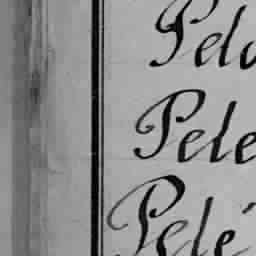 Pelo
Pele
Pelé